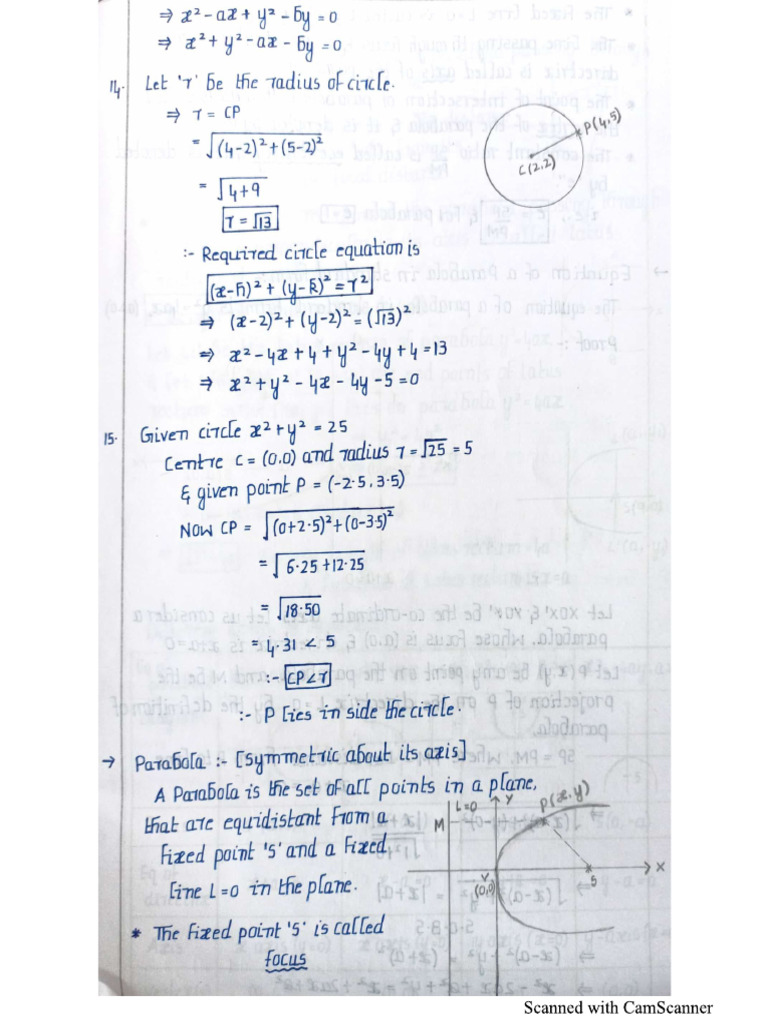 ⇒ x² - ax + y² - by = 0
⇒ x² + y² - ax - by = 0
14. Let 'r' be the radius of circle.
⇒ r = CP
= √(4-2)² + (5-2)²
= √4+9
r = √13
P(4,5)
C(2,2)
:- Required circle equation is
(x-h)² + (y-k)² = r²
⇒ (x-2)² + (y-2)² = (√13)²
⇒ x² - 4x + 4 + y² - 4y + 4 = 13
⇒ x² + y² - 4x - 4y - 5 = 0
15. Given circle x² + y² = 25
Centre C = (0,0) and radius r = √25 = 5
& given point P = (-2.5, 3.5)
NOW CP = √(0+2.5)² + (0-3.5)²
= √6.25 + 12.25
= √18.50
= 4.31 < 5
:- CP < r
:- P lies in side the circle.
→ Parabola :- [Symmetric about its axis]
A Parabola is the set of all points in a plane,
that are equidistant from a
fixed point 's' and a fixed
line L=0 in the plane.
* The fixed point 's' is called
focus
L=0
Y
P(x,y)
M
V
(0,0)
S
X
Scanned with CamScanner